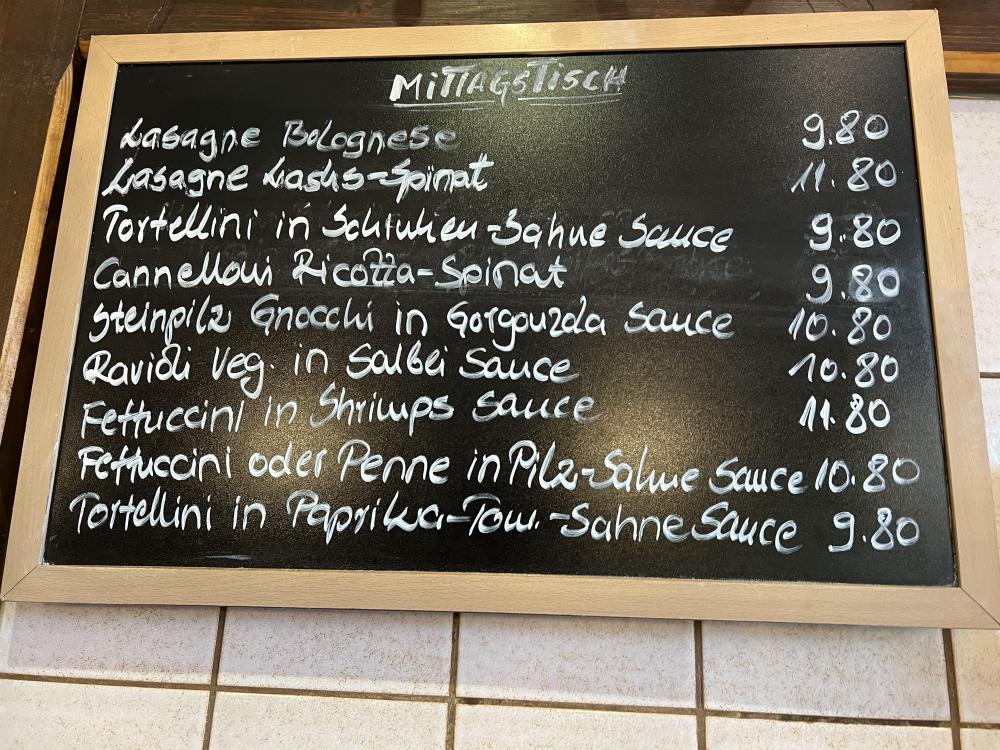 MITTAGSTISCH
Lasagne Bolognese 9.80
Lasagne Lachs-Spinat 11.80
Tortellini in Schinken-Sahne Sauce 9.80
Cannelloni Ricotta-Spinat 9.80
Steinpilz Gnocchi in Gorgonzola Sauce 10.80
Ravioli Veg. in Salbei Sauce 10.80
Fettuccini in Shrimps Sauce 11.80
Fettuccini oder Penne in Pilz-Sahne Sauce 10.80
Tortellini in Paprika-Tom.-Sahne Sauce 9.80